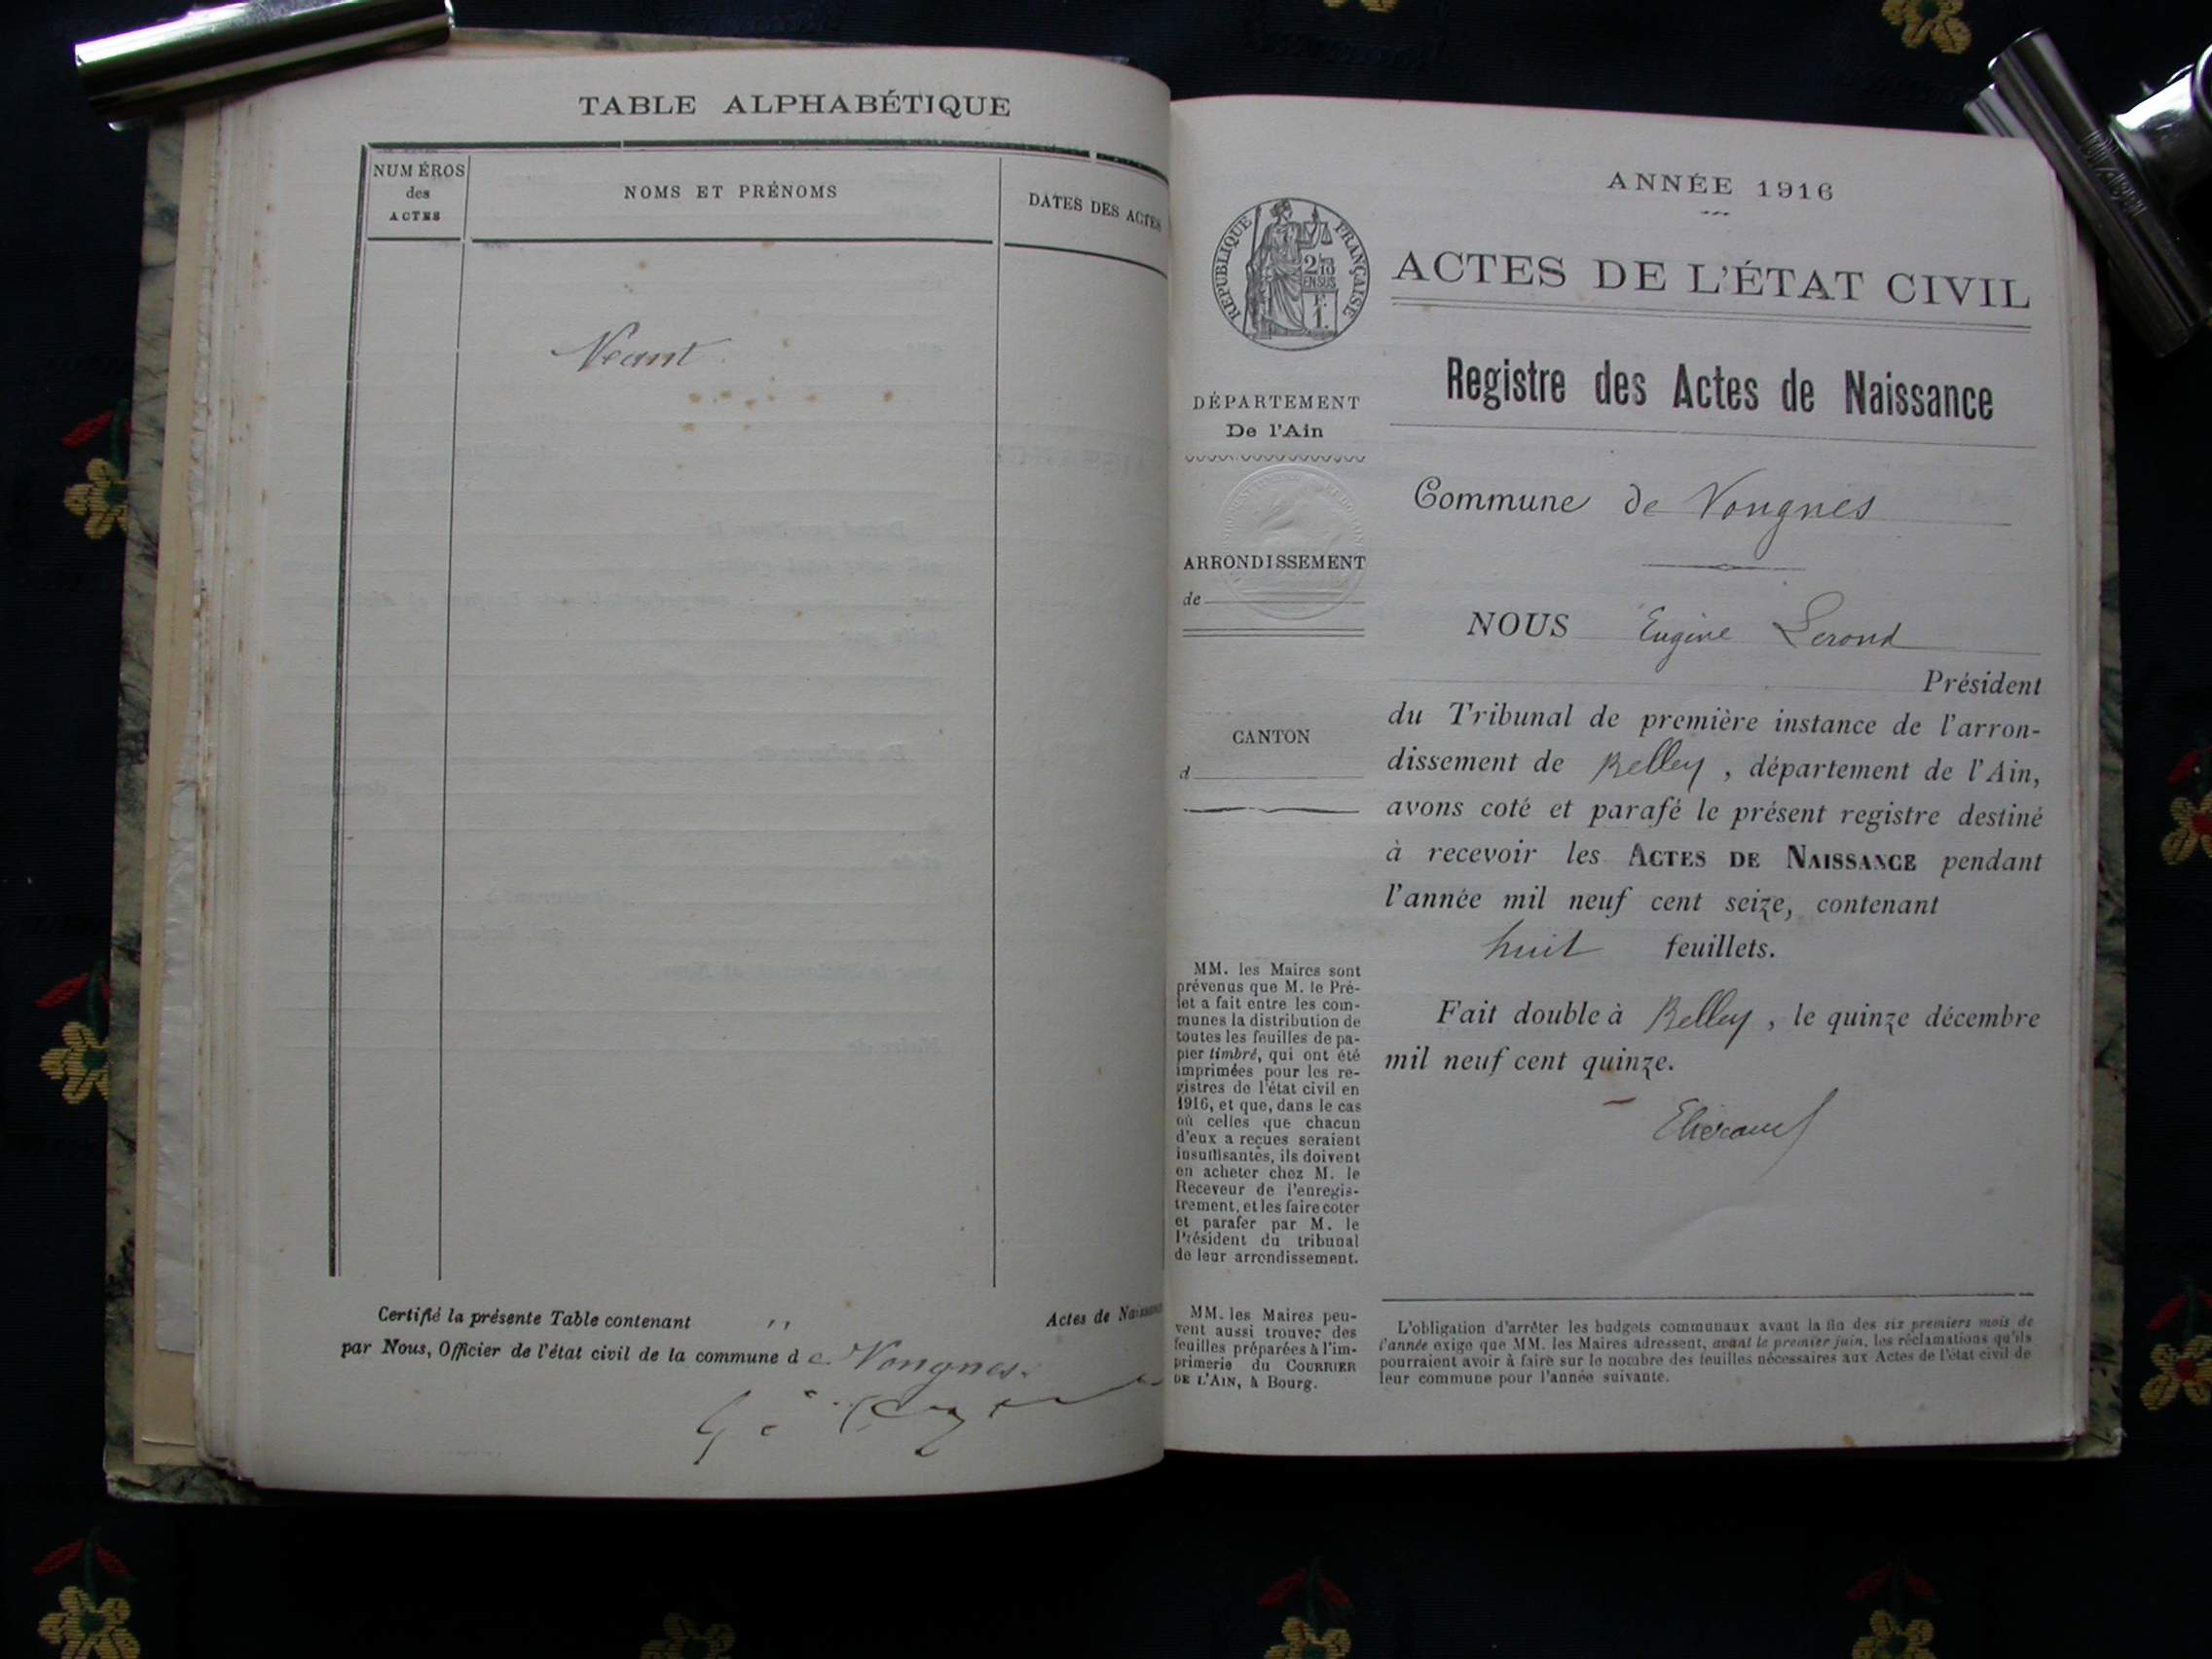 TABLE ALPHABÉTIQUE
NUMÉROS
des
ACTES
NOMS ET PRÉNOMS
DATES DES ACTES
Néant
Certifié la présente Table contenant ,, Actes de Naissance
par Nous, Officier de l'état civil de la commune de Vongnes.
ANNÉE 1916
RÉPUBLIQUE FRANÇAISE
2/10
EN SUS
F.
1.
ACTES DE L'ÉTAT CIVIL
Registre des Actes de Naissance
DÉPARTEMENT
De l'Ain
Commune de Vongnes
ARRONDISSEMENT
de
NOUS Eugène Lerond
Président
du Tribunal de première instance de l'arron-
dissement de Belley, département de l'Ain,
avons coté et parafé le présent registre destiné
à recevoir les ACTES DE NAISSANCE pendant
l'année mil neuf cent seize, contenant
huit feuillets.
Fait double à Belley, le quinze décembre
mil neuf cent quinze.
CANTON
d
MM. les Maires sont
prévenus que M. le Pré-
fet a fait entre les com-
munes la distribution de
toutes les feuilles de pa-
pier timbré, qui ont été
imprimées pour les re-
gistres de l'état civil en
1916, et que, dans le cas
où celles que chacun
d'eux a reçues seraient
insuffisantes, ils doivent
en acheter chez M. le
Receveur de l'enregis-
trement, et les faire coter
et parafer par M. le
Président du tribunal
de leur arrondissement.
MM. les Maires peu-
vent aussi trouver des
feuilles préparées à l'im-
primerie du COURRIER
DE L'AIN, à Bourg.
L'obligation d'arrêter les budgets communaux avant la fin des six premiers mois de
l'année exige que MM. les Maires adressent, avant le premier juin, les réclamations qu'ils
pourraient avoir à faire sur le nombre des feuilles nécessaires aux Actes de l'état civil de
leur commune pour l'année suivante.